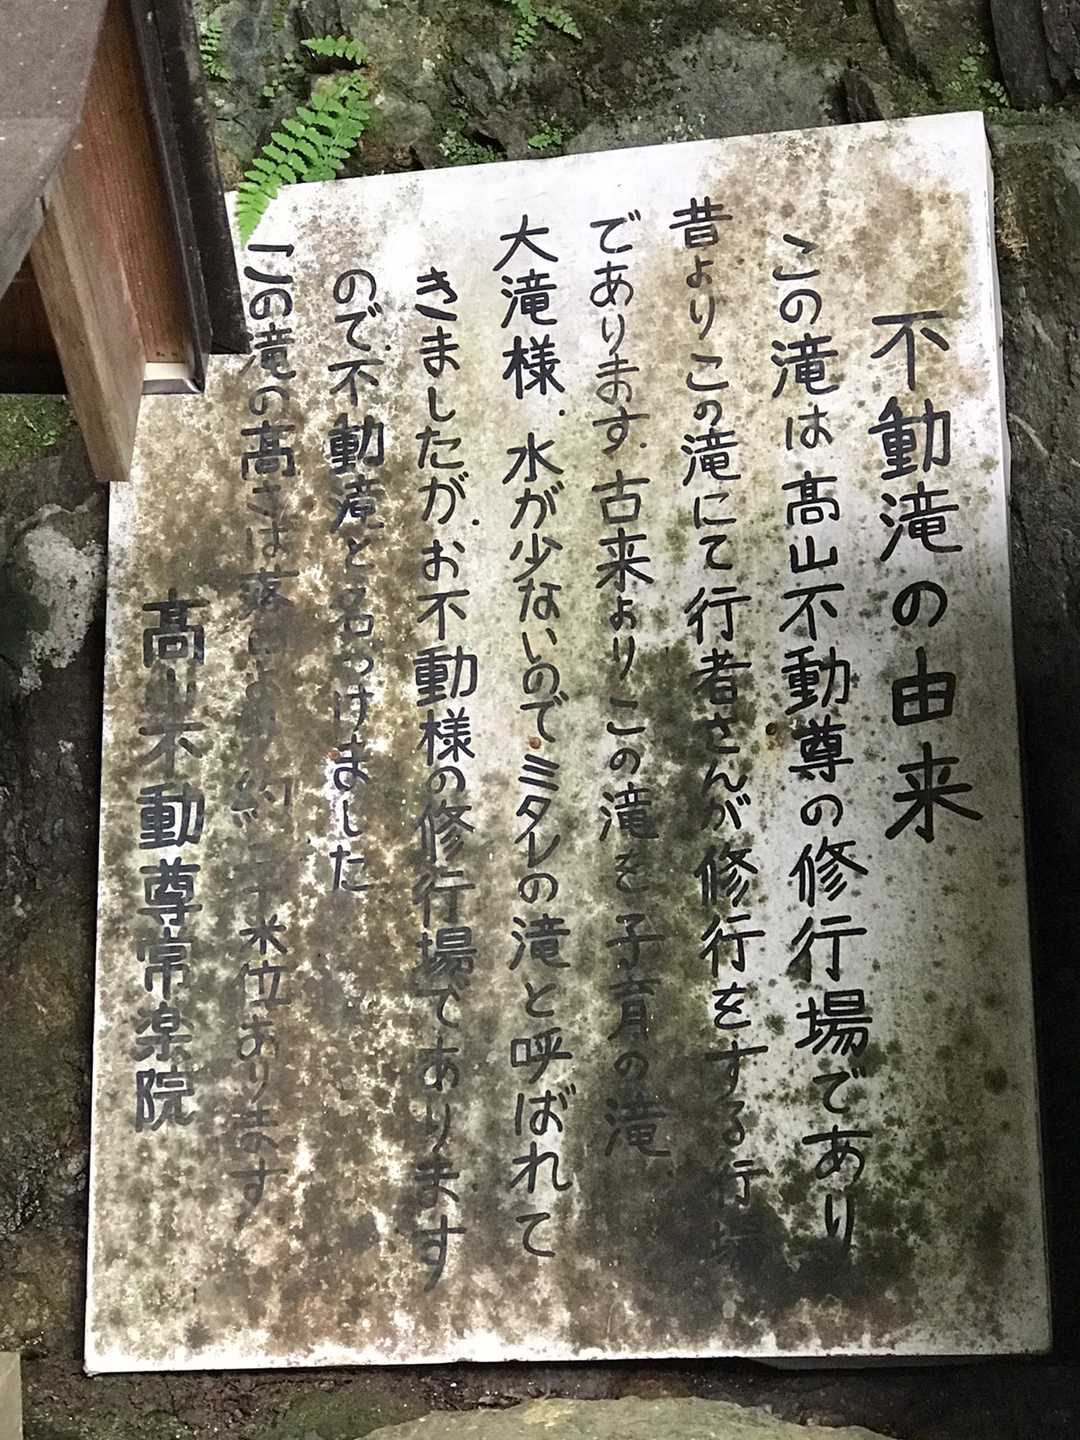 不動滝の由来
この滝は髙山不動尊の修行場であり
昔よりこの滝にて行者さんが修行をする行場
であります。古来よりこの滝を子育の滝
大滝様・水が少ないのでミタレの滝と呼ばれて
きましたがお不動様の修行場であります
ので不動滝と名づけました
この滝の髙さは落口より約 米位あります
髙山不動尊常楽院